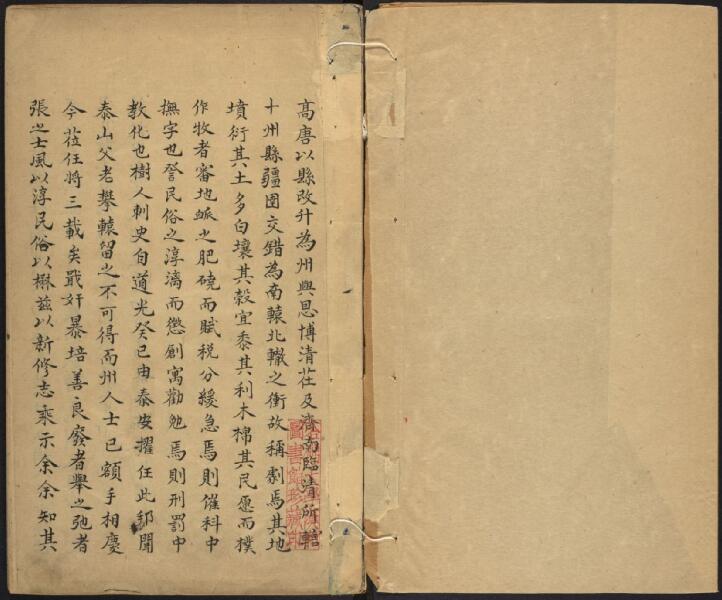 高唐以縣改升為州與恩博清茌及濟南臨清所轄
十州縣疆圉交錯為南轅北轍之衝故稱劇焉其地
墳衍其土多白壤其穀宜黍其利木棉其民愿而樸
作牧者審地脈之肥磽而賦稅分緩急焉則催科中
撫字也詧民俗之淳漓而懲創寓勸勉焉則刑罰中
教化也樹人刺史自道光癸巳由泰安擢任此邦聞
泰山父老攀轅留之不可得而州人士已額手相慶
今茬任將三載矣戢奸暴培善良廢者舉之弛者
張之士風以淳民俗以楙茲以新修志乘示余余知其
圖書館珍藏印